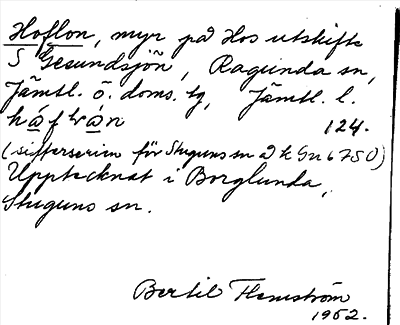 Hoflon, myr på Hos utskifte
S Gesundsjön, Ragunda sn,
Jämtl. ö. doms. lg, Jämtl. l.
124.
(sifferserien för Stuguns sn 2 k Gn 6750)
Upptecknat i Borglunda,
Stuguns sn.
Bertil Flemström
1952.